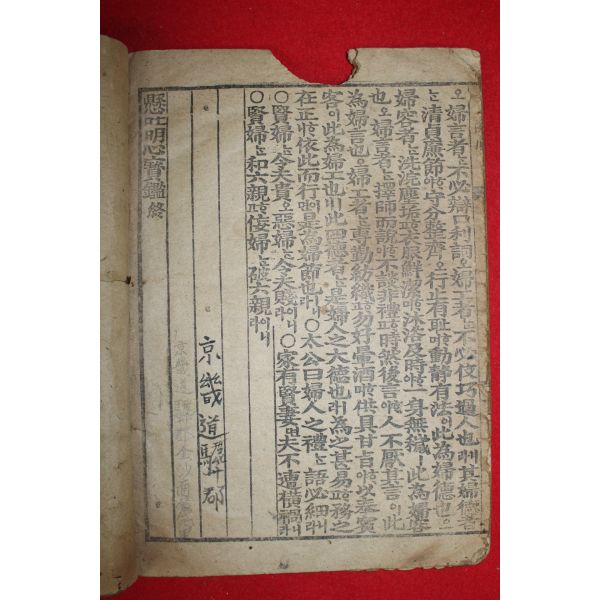 오婦言者는不必辯口利詞오婦工者는不必伎巧過人也ㅣ니其婦德者
는清貞廉節ᄒᆞ야守分整齊ᄒᆞ고行止有恥ᄒᆞ며動靜有法이니此為婦德也ㅣ오
婦容者는洗浣塵垢ᄒᆞ야衣服鮮潔ᄒᆞ며沐浴及時ᄒᆞ야一身無穢니此為婦容
也오婦言者는擇師而說ᄒᆞ야不談非禮ᄒᆞ고時然後言ᄒᆞ야人不厭其言이니此
為婦言也오婦工者는專勤紡織ᄒᆞ고勿好暈酒ᄒᆞ며供具甘旨ᄒᆞ야以奉賓
客이니此為婦工也ㅣ니此四德者는是婦人之大德也ㅣ라為之甚易ᄒᆞ고務之
在正ᄒᆞ니依此而行이면是為婦節也ㅣ니라○太公曰婦人之禮는語必細니라
○賢婦는令夫貴오惡婦는令夫賤이니라○家有賢妻면夫不遭橫禍ㅣ니라
○賢婦는和六親ᄒᆞ고佞婦는破六親이니라
京畿道驪州郡
京畿道
懸吐明心寶鑑終